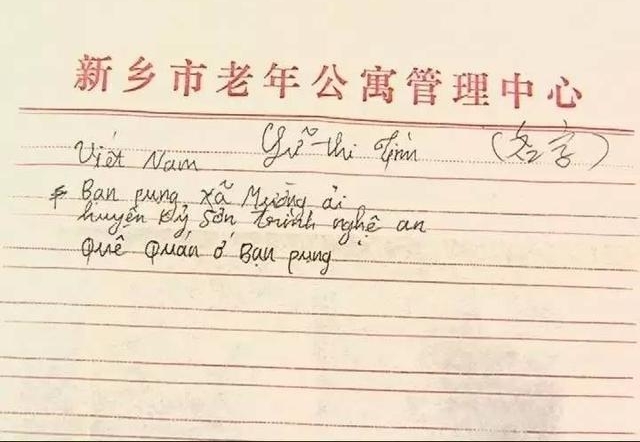 新乡市老年公寓管理中心
Việt Nam thi (名字)
Bạn pung, xã Mường ải
huyện Kỳ Sơn trình nghệ an
Quê Quán ở Bạn pung